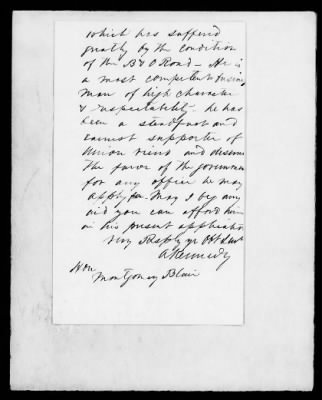 which has suffered
greatly by the condition
of the B & O Road - He is
a most competent business
man of high character
& respectability. he has
been a steadfast and
earnest supporter of
Union views and deserves
the favor of the government
for any office he may
apply for. May I beg any
aid you can afford him
in his present application
Very Respy yr Obt Servt
A Kennedy
Hon
Montgomery Blair